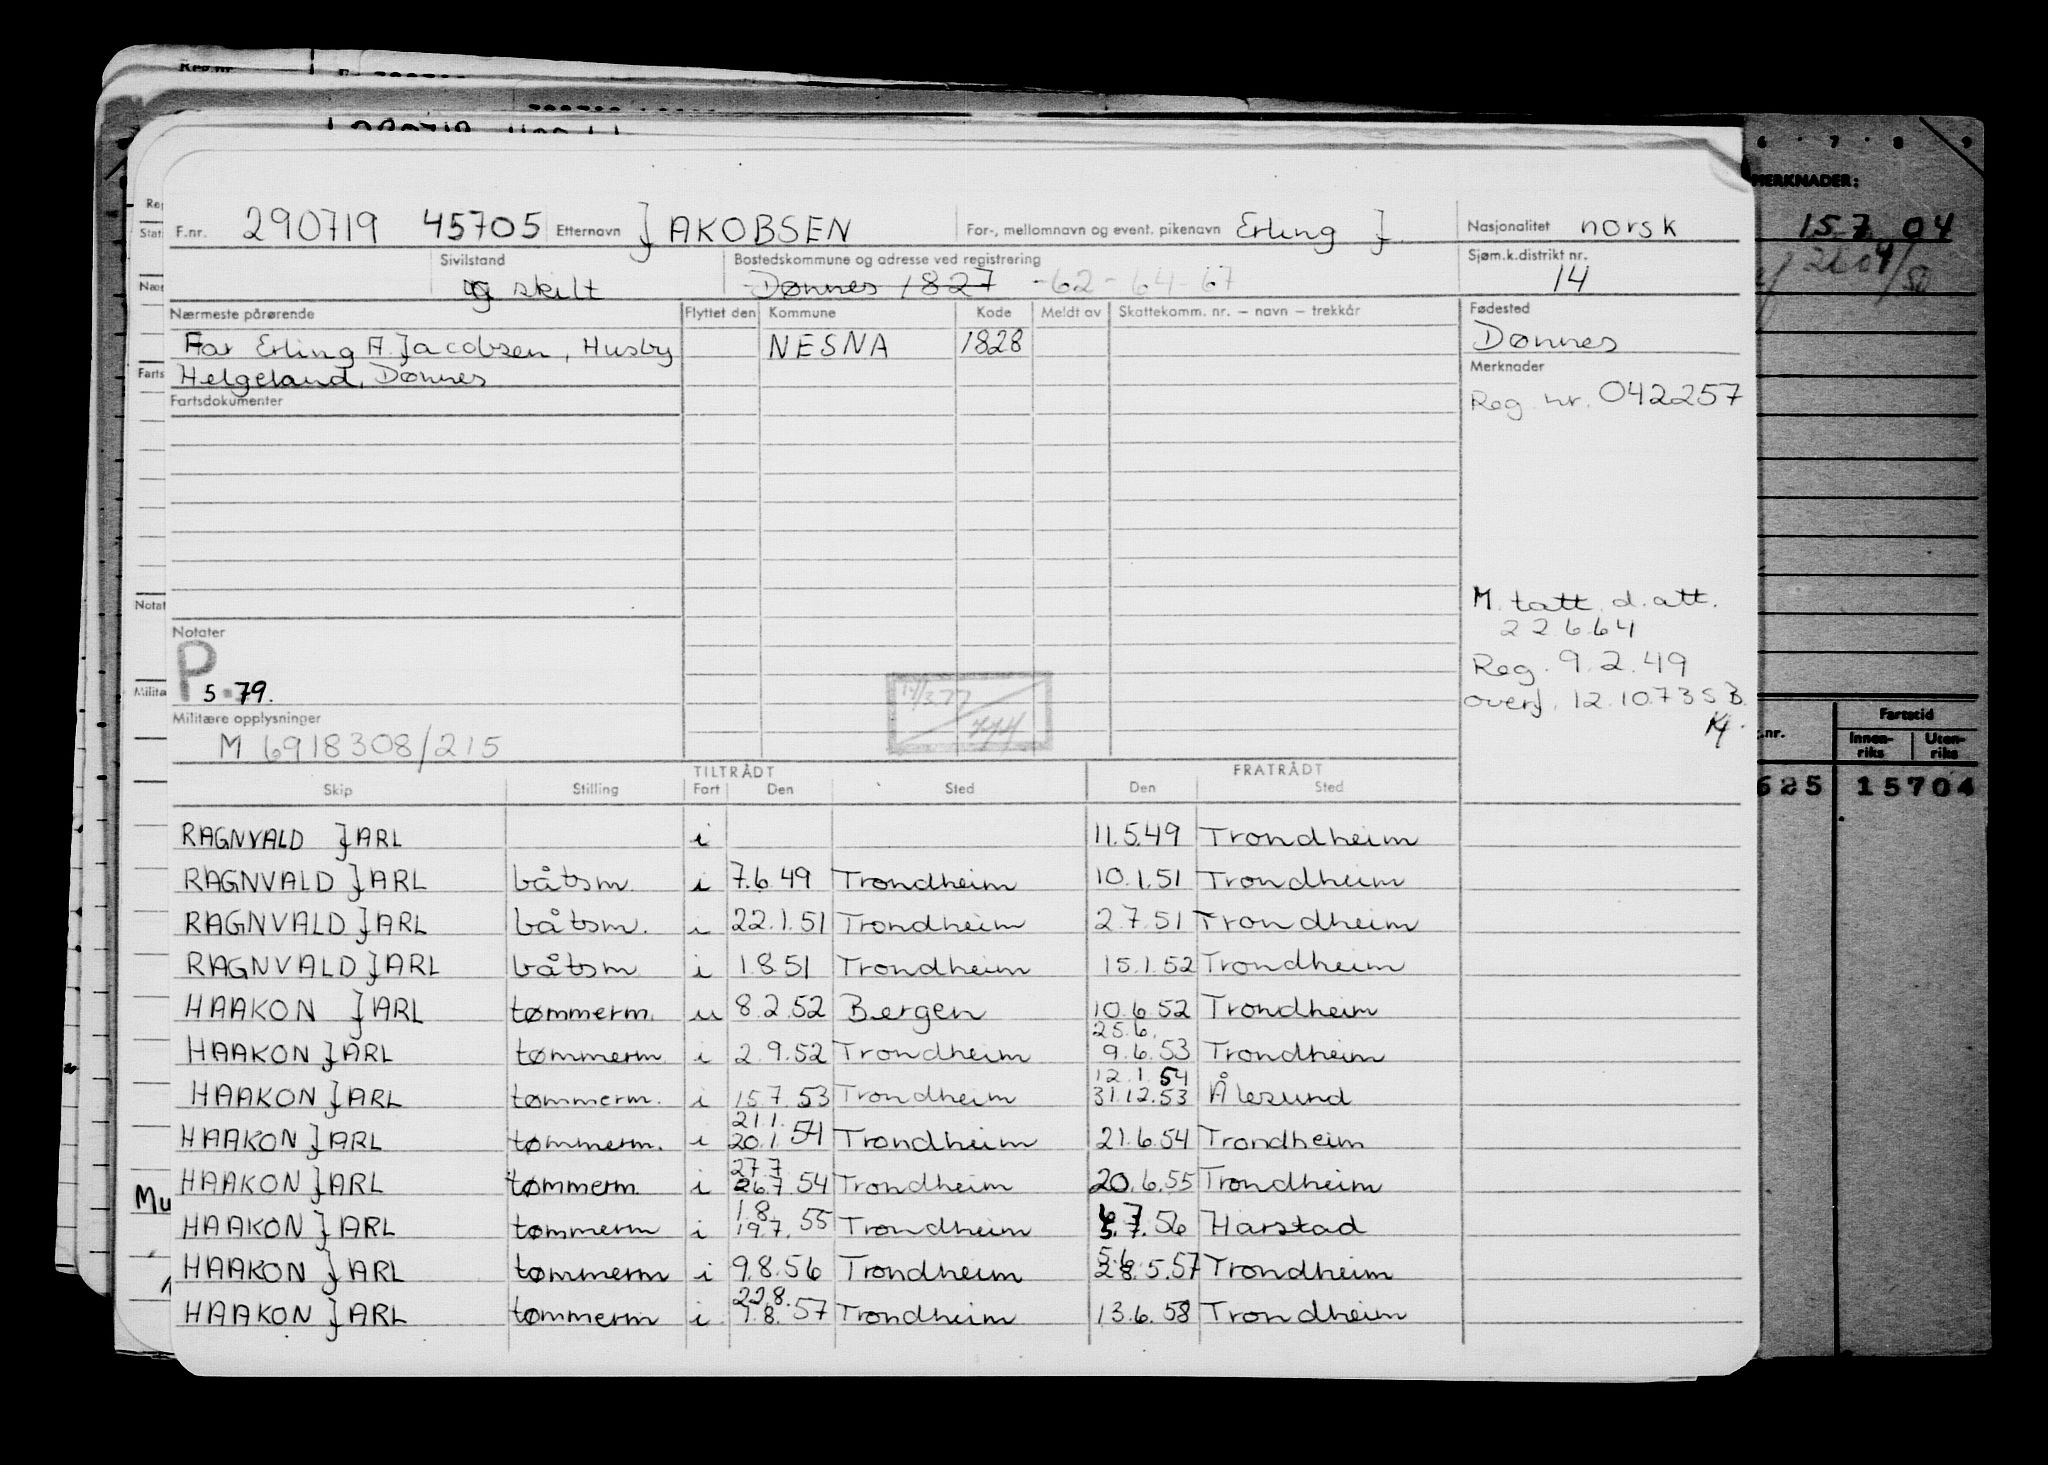 Reg.nr.
F.nr. 290719 45705 Etternavn JAKOBSEN For-, mellomnavn og event. pikenavn Erling J. Nasjonalitet norsk
Sivilstand Bostedskommune og adresse ved registrering Sjøm.k.distrikt nr.
skilt Dønnes 1827 -62-64-67 14
Nærmeste pårørende Flyttet den Kommune Kode Meldt av Skattekomm. nr. – navn – trekkår Fødested
Far Erling A. Jacobsen, Husby NESNA 1828 Dønnes
Helgeland, Dønnes Merknader
Fartsdokumenter Reg. nr. 042257
M. tatt. d. att.
22.6.64
Notater
P Reg. 9.2.49
5.79. overf. 12.10.73 SB
Militære opplysninger
M 6918308/215
774
TILTRÅDT FRATRÅDT
Skip Stilling Fart Den Sted Den Sted
RAGNVALD JARL i 11.5.49 Trondheim
RAGNVALD JARL båtsm. i 7.6.49 Trondheim 10.1.51 Trondheim
RAGNVALD JARL båtsm. i 22.1.51 Trondheim 2.7.51 Trondheim
RAGNVALD JARL båtsm i 1.8.51 Trondheim 15.1.52 Trondheim
HAAKON JARL tømmerm. u 8.2.52 Bergen 10.6.52 Trondheim
25.6.
HAAKON JARL tømmerm i 2.9.52 Trondheim 9.6.53 Trondheim
12.1.54
HAAKON JARL tømmerm. i 15.7.53 Trondheim 31.12.53 Ålesund
21.1.
HAAKON JARL tømmerm. i 20.1.54 Trondheim 21.6.54 Trondheim
27.7
HAAKON JARL tømmerm. i 26.7 54 Trondheim 20.6.55 Trondheim
1.8. 6 7
HAAKON JARL tømmerm i 19.7. 55 Trondheim 5.7.56 Harstad
5.6.
HAAKON JARL tømmerm i 9.8.56 Trondheim 28.5.57 Trondheim
22.8.
HAAKON JARL tømmerm i 1.8. 57 Trondheim 13.6.58 Trondheim
6 7 8 9
MERKNADER:
15.7.04
Fartstid
Innen-riks Uten-riks
625 15704
Mu